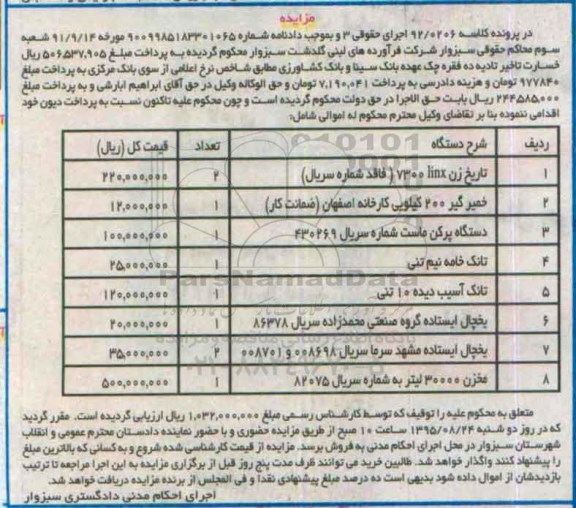 مزایده
در پرونده کلاسه ۹۲/۰۲۰۶ اجرای حقوقی ۳ و بموجب دادنامه شماره ۹۰۰۹۹۸۵۱۸۳۳۰۱۰۶۵ مورخه ۹۱/۹/۱۴ شعبه
سوم محاکم حقوقی سبزوار شرکت فرآورده های لبنی گلدشت سبزوار محکوم گردیده به پرداخت مبلغ ۵۰۶۵۳۷,۹۰۵ ریال
خسارت تاخیر تادیه ده فقره چک عهده بانک سینا و بانک کشاورزی مطابق شاخص نرخ اعلامی از سوی بانک مرکزی به پرداخت مبلغ
۹۷۷۸۴۰ تومان و هزینه دادرسی به پرداخت ۷,۱۹۰,۰۴۱ تومان و حق الوکاله وکیل در حق آقای ابراهیم ابارشی و به پرداخت مبلغ
۲۴۴۵۸۵,۰۰۰ ریال بابت حق الاجرا در حق دولت محکوم گردیده است و چون محکوم علیه تاکنون نسبت به پرداخت دیون خود
اقدامی ننموده بنا بر تقاضای وکیل محترم محکوم له اموالی شامل:
ردیف شرح دستگاه تعداد قیمت کل (ریال)
۱ تاریخ زن linx ۷۳۰۰ ( فاقد شماره سریال) ۲ ۲۲۰,۰۰۰,۰۰۰
۲ خمیر گیر ۲۰۰ کیلویی کارخانه اصفهان (ضمانت کار) ۱ ۱۲,۰۰۰,۰۰۰
۳ دستگاه پرکن ماست شماره سریال ۴۳۰۲۶۹ ۱ ۱۰۰,۰۰۰,۰۰۰
۴ تانک خامه نیم تنی ۱ ۲۵,۰۰۰,۰۰۰
۵ تانک آسیب دیده ۱۰ تنی ۱ ۱۲۰,۰۰۰,۰۰۰
۶ یخچال ایستاده گروه صنعتی محمدزاده سریال ۸۶۳۷۸ ۱ ۲۰,۰۰۰,۰۰۰
۷ یخچال ایستاده مشهد سرما سریال ۰۰۸۶۹۸ و ۰۰۸۷۰۱ ۲ ۳۵,۰۰۰,۰۰۰
۸ مخزن ۳۰۰۰۰ لیتر به شماره سریال ۸۲۰۷۵ ۱ ۵۰۰,۰۰۰,۰۰۰
ParsNamadData
متعلق به محکوم علیه را توقیف که توسط کارشناس رسمی مبلغ ۱,۰۳۲,۰۰۰,۰۰۰ ریال ارزیابی گردیده است. مقرر گردید
که در روز دو شنبه ۱۳۹۵/۰۸/۲۴ ساعت ۱۰ صبح از طریق مزایده حضوری و با حضور نماینده دادستان محترم عمومی و انقلاب
شهرستان سبزوار در محل اجرای احکام مدنی به فروش برسد. مزایده از قیمت کارشناسی شده شروع و به کسانی که بالاترین مبلغ
را پیشنهاد کنند واگذار خواهد شد. طالبین خرید می توانند ظرف مدت پنج روز قبل از برگزاری مزایده به این اجرا مراجعه تا ترتیب
بازدیدشان از اموال داده شود بدیهی است ده درصد مبلغ پیشنهادی نقدا و فی المجلس از برنده مزایده دریافت خواهد شد.
اجرای احکام مدنی دادگستری سبزوار